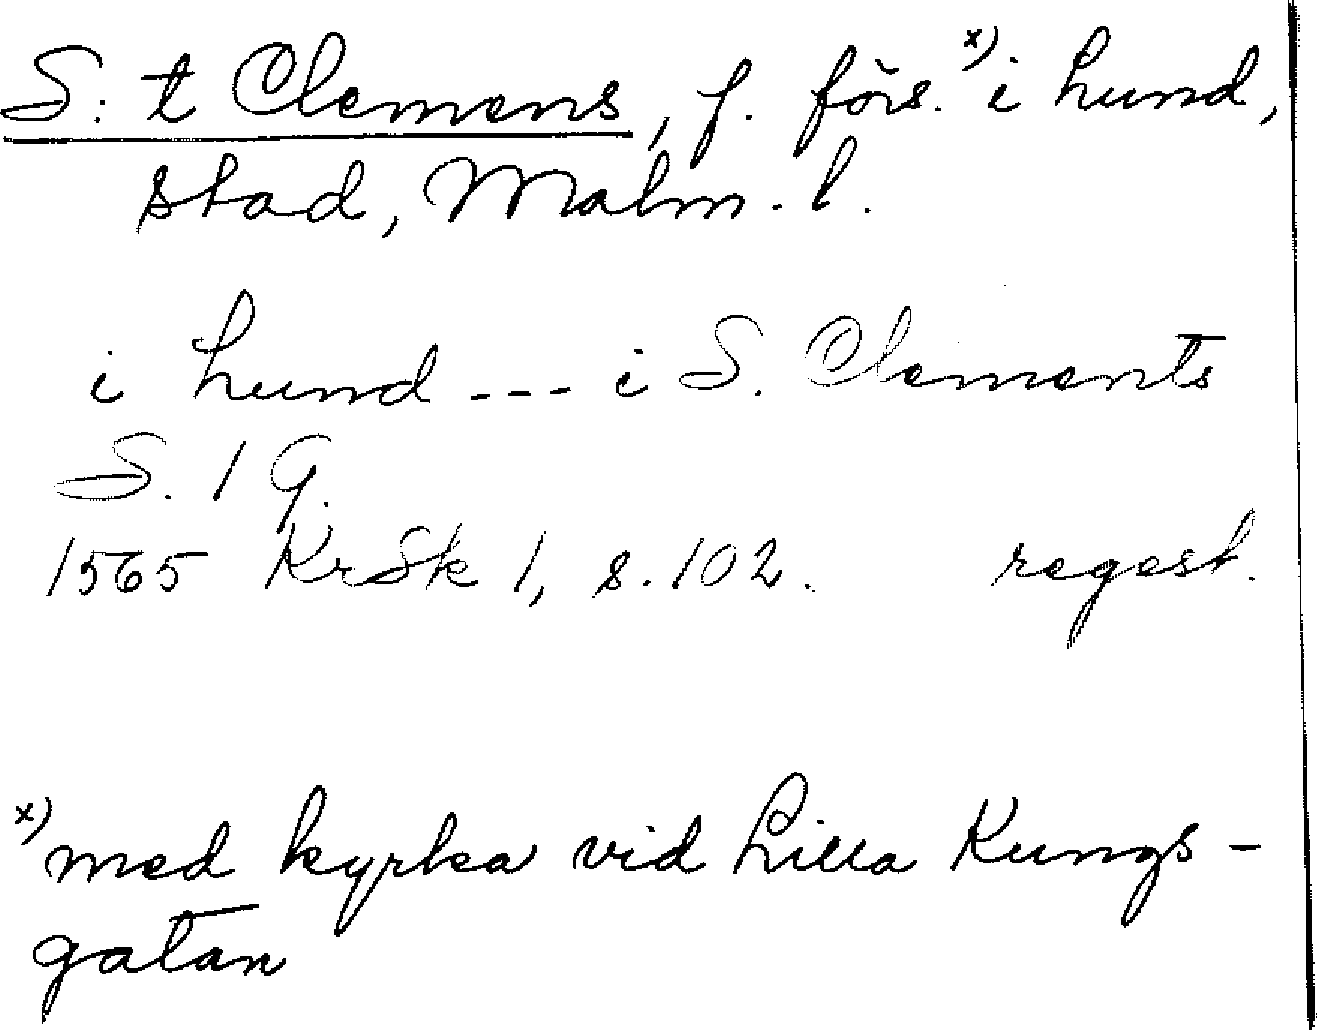 S:t Clemens, f. förs. x) i Lund,
stad, Malm. l.
i Lund --- i S. Clements
S. / G.
1565 KrSk 1, s. 102. regest.
x) med kyrka vid Lilla Kungs-
gatan